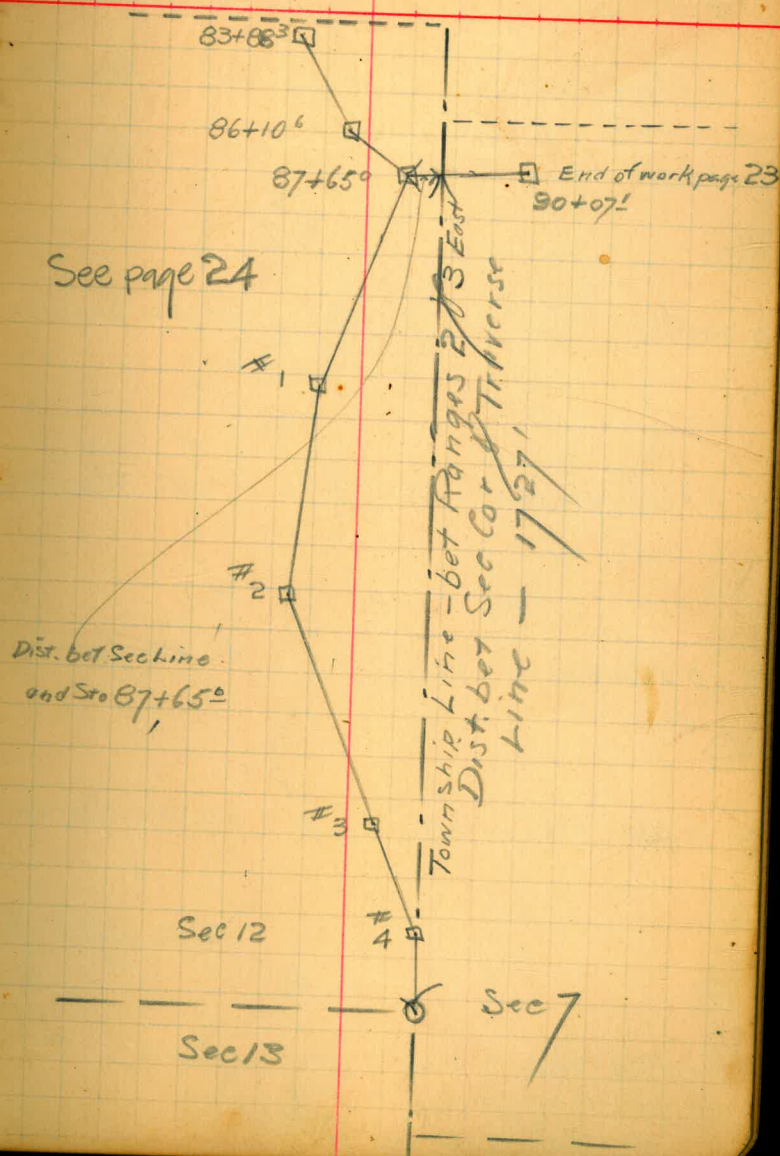 83+88³
86+10⁶
87+65⁰
End of work page 23
90+07¹
See page 24
#1
#2
Dist. bet Sec Line
and Sta 87+65⁰
#3
#4
Township Line - bet Ranges 2 & 3 East
Dist. bet Sec Cor & Traverse
Line — 1727'
Sec 12
Sec 7
Sec 13